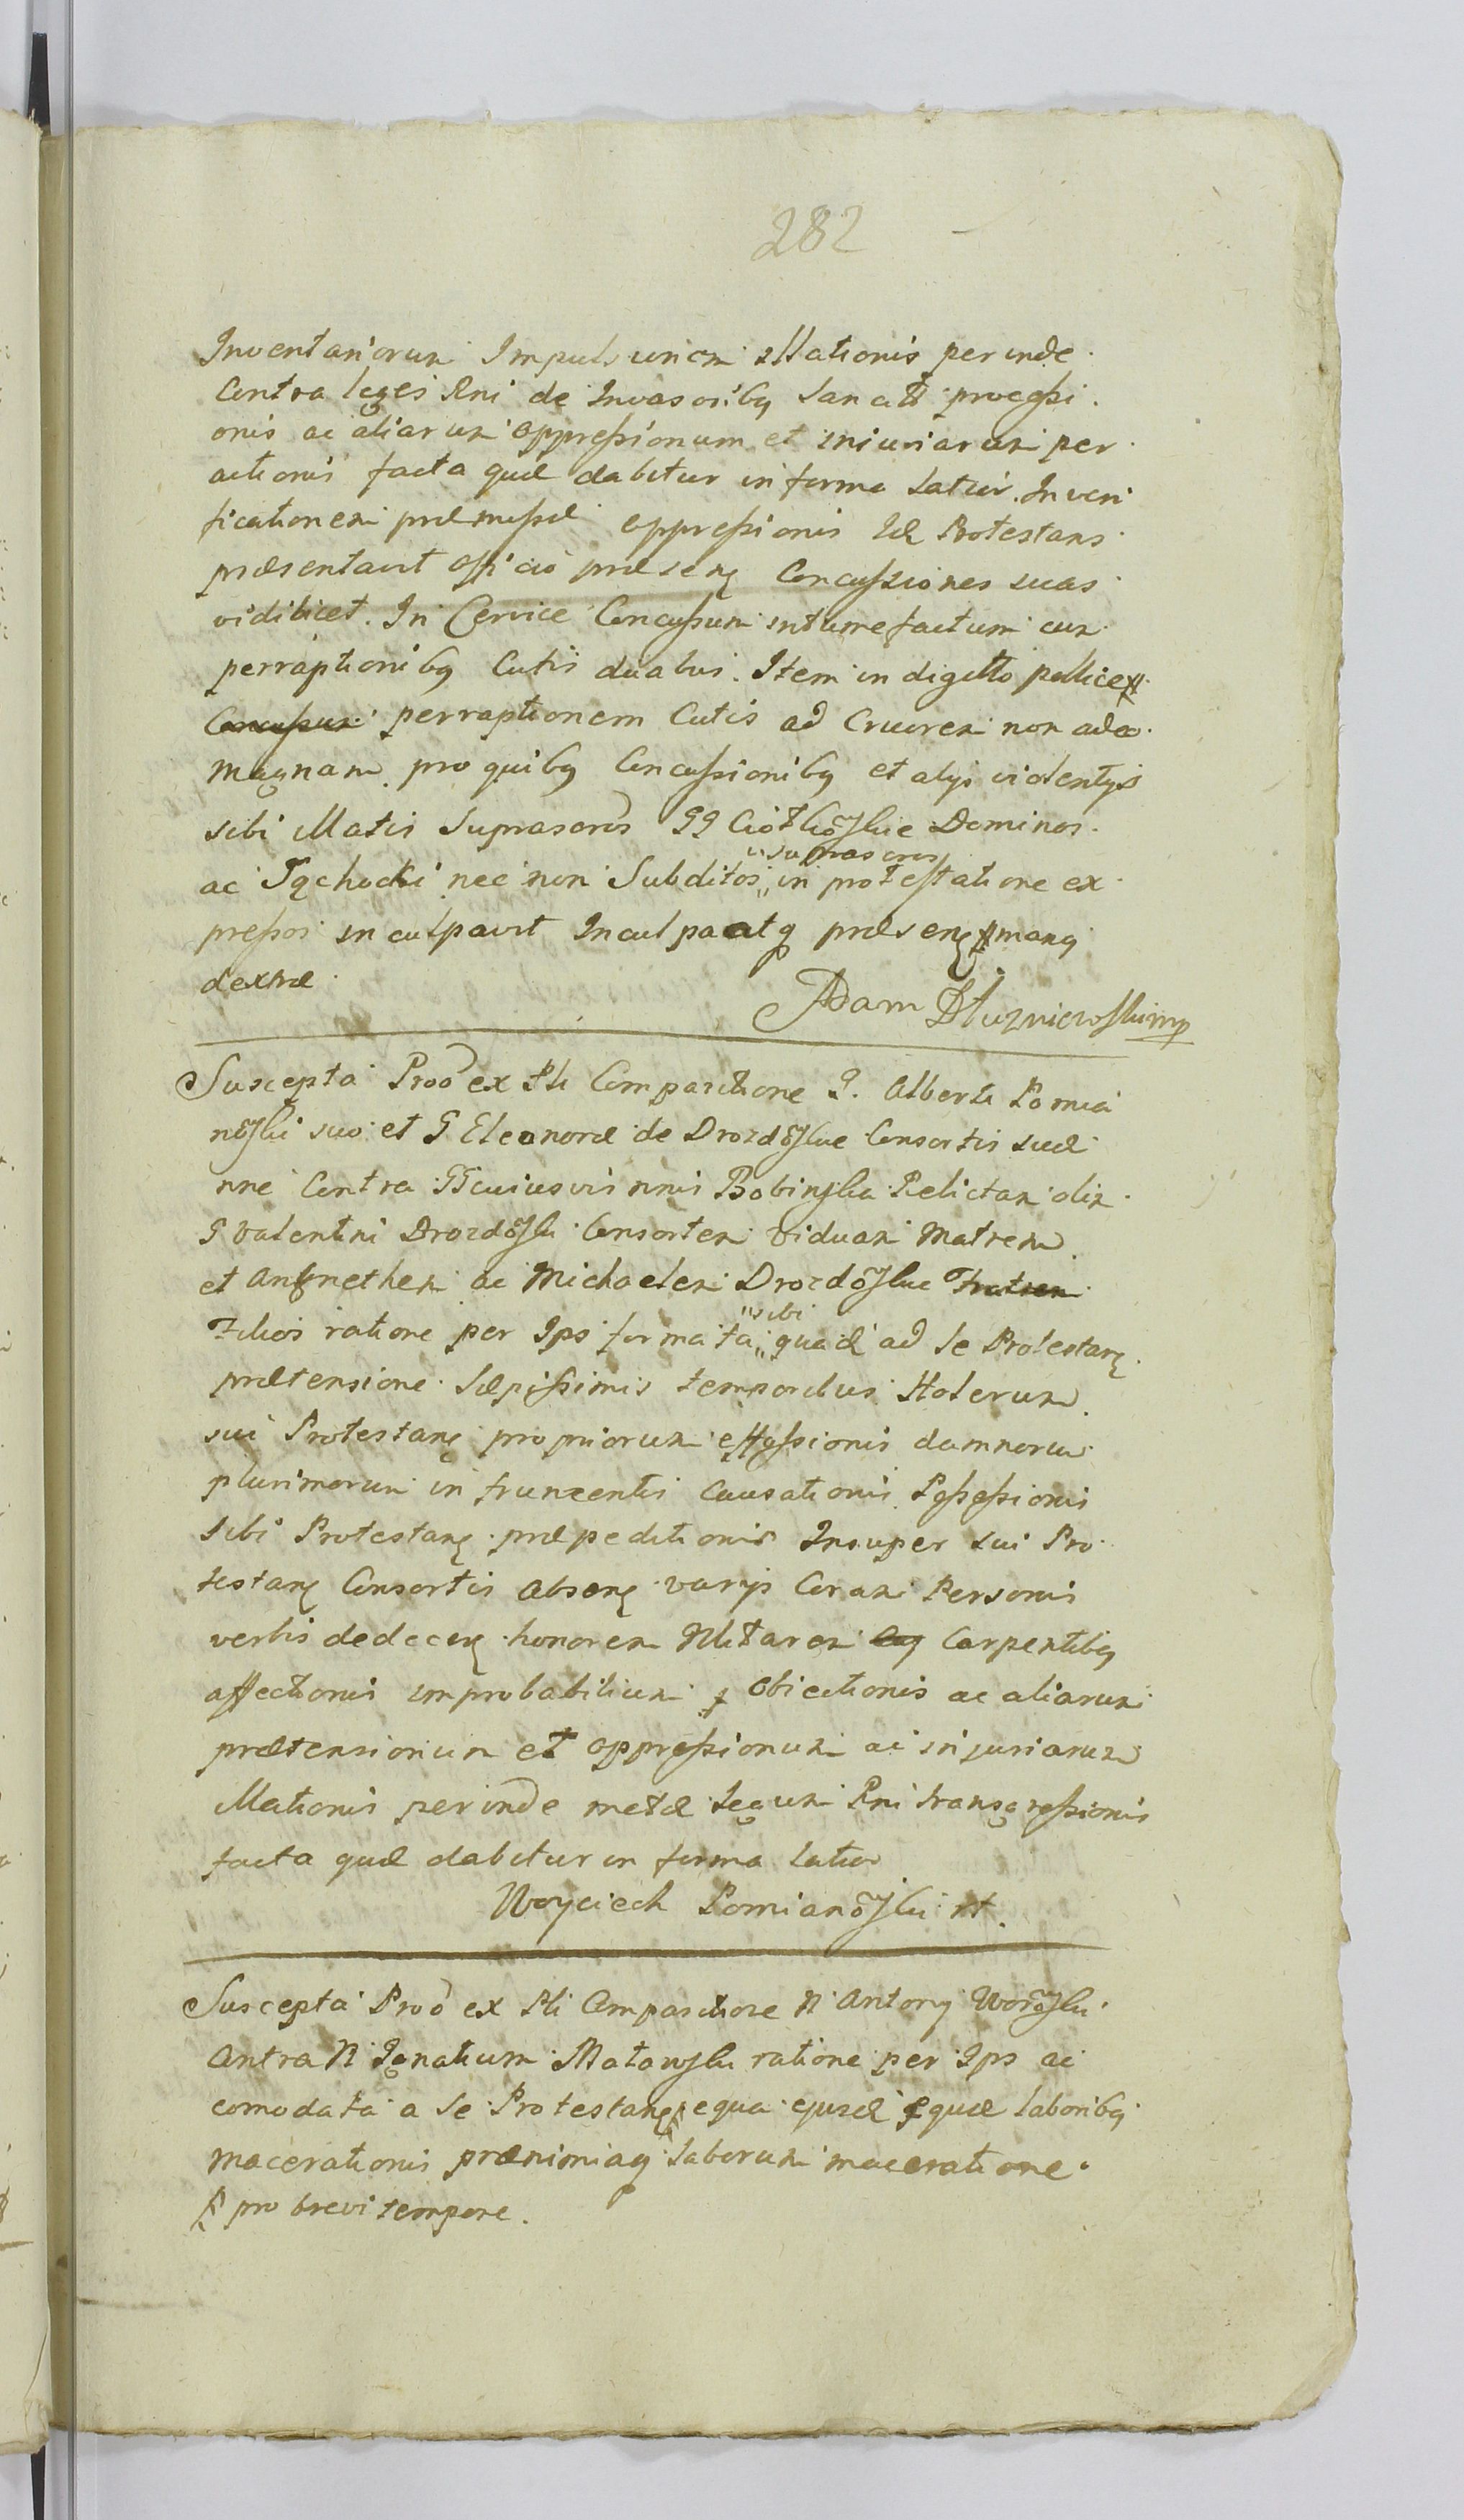 282
Inventariorum Impulsionem illationis perinde
Contra leges Rni de Invasoribq sancitt processi
onis ac aliarum oppressionum et iniuriarum per
actionis facta quæ dabitur in forma Latior. In veri
ficationem præmissæ oppressionis Id Protestans
præsentavit officio præsenq Concussiones suas
vidilicet. In Cervice Concussum intumefactum cum
perraptionibq Cutis duabus. Item in digitto pollice
Concussum perraptionem Cutis ad Cruorem non adeo
magnam pro quibq Concussionibq et alys violentys
sibi illatis Suprascros GG Ciotkoskie Dominos
ac Tqchocki nec non Subditos "suprascros in protestatione ex
pressos inculpavit Inculpatq præsenq manq
dextræ
Adam Dłuzniewski mp
Suscepta Proo ex Pli Comparitione G. Alberti Pomia
noski suo et G Eleonoræ de Drozdoskie Consortis suæ
nne Contra G cuiusvis nnis Bobinska Relictam olim
G Valentini Drozdoski Consortem Viduam Matrem
et Michaelem Drozdoskie Fratrem
Filios ratione per Ips formata "sibi quad ad se Protestanq
prætensione sæpissimis temporibus Holerum
sui Protestanq propriorum effossionis damnorum
plurimorum in frumentis Causationis Possessionis
sibi Protestanq præpeditionis Insuper sui Pro
testanq Consortis Absenq varys Coram Personis
verbis dedecenq honorem Carpentibq
affectionis improbabilium obiectionis ac aliarum
prætensionum et oppressionum ac injuriarum
illationis perinde metæ Legum Rni transgressionis
facta quæ dabitur in forma latior
Woyciech Pomianoski
Suscepta Proo ex Pli Comparitione N Antony Woroski
Contra N Ignatium ratione per Ips ac
comodata a se Protestanq equa ejusd equæ laboribq
macerationis prænimiaq laborum maceratione
pro brevi tempore.